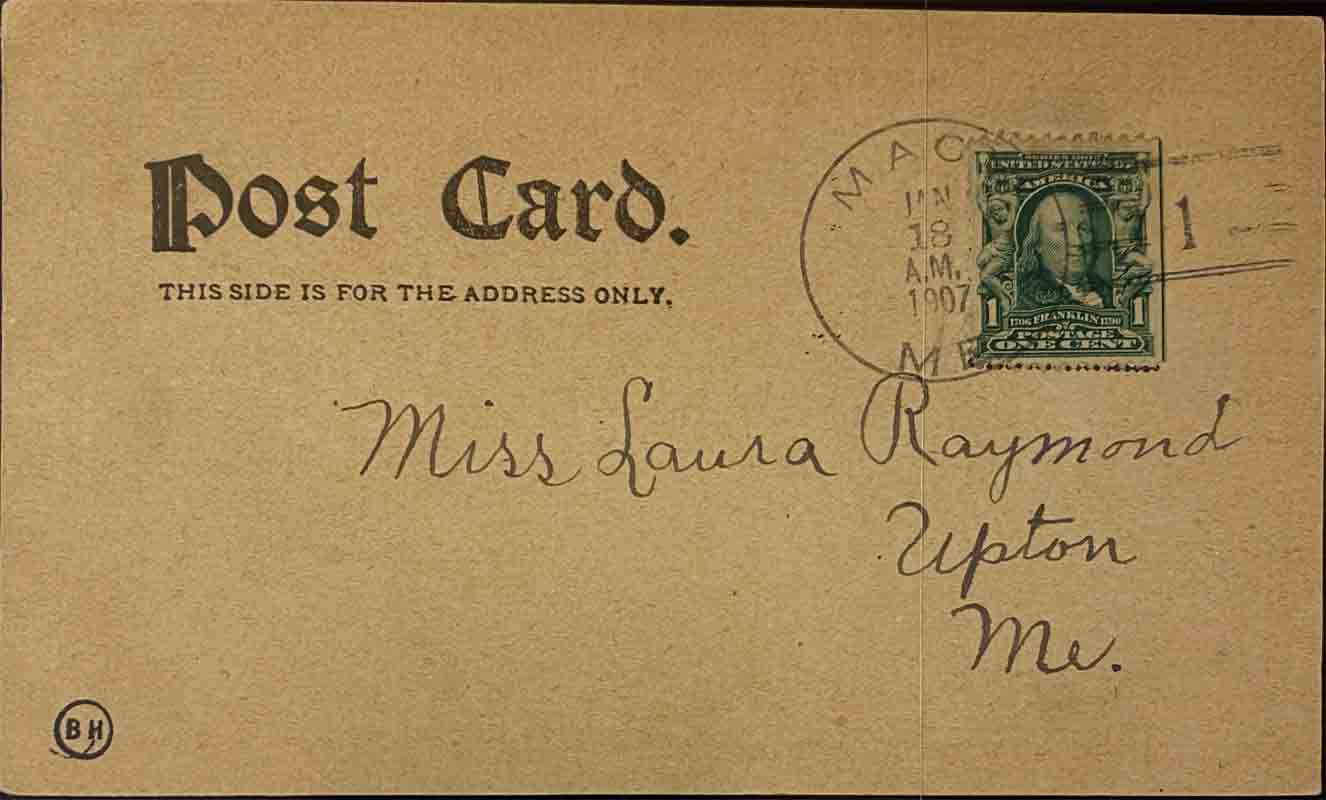 Post Card.
THIS SIDE IS FOR THE ADDRESS ONLY.
JAN
18
A.M.
1907
ME
1
SERIES 1902
UNITED STATES OF
AMERICA
1 1
1706 FRANKLIN 1790
POSTAGE
ONE CENT
Miss Laura Raymond
Upton
Me.
BH